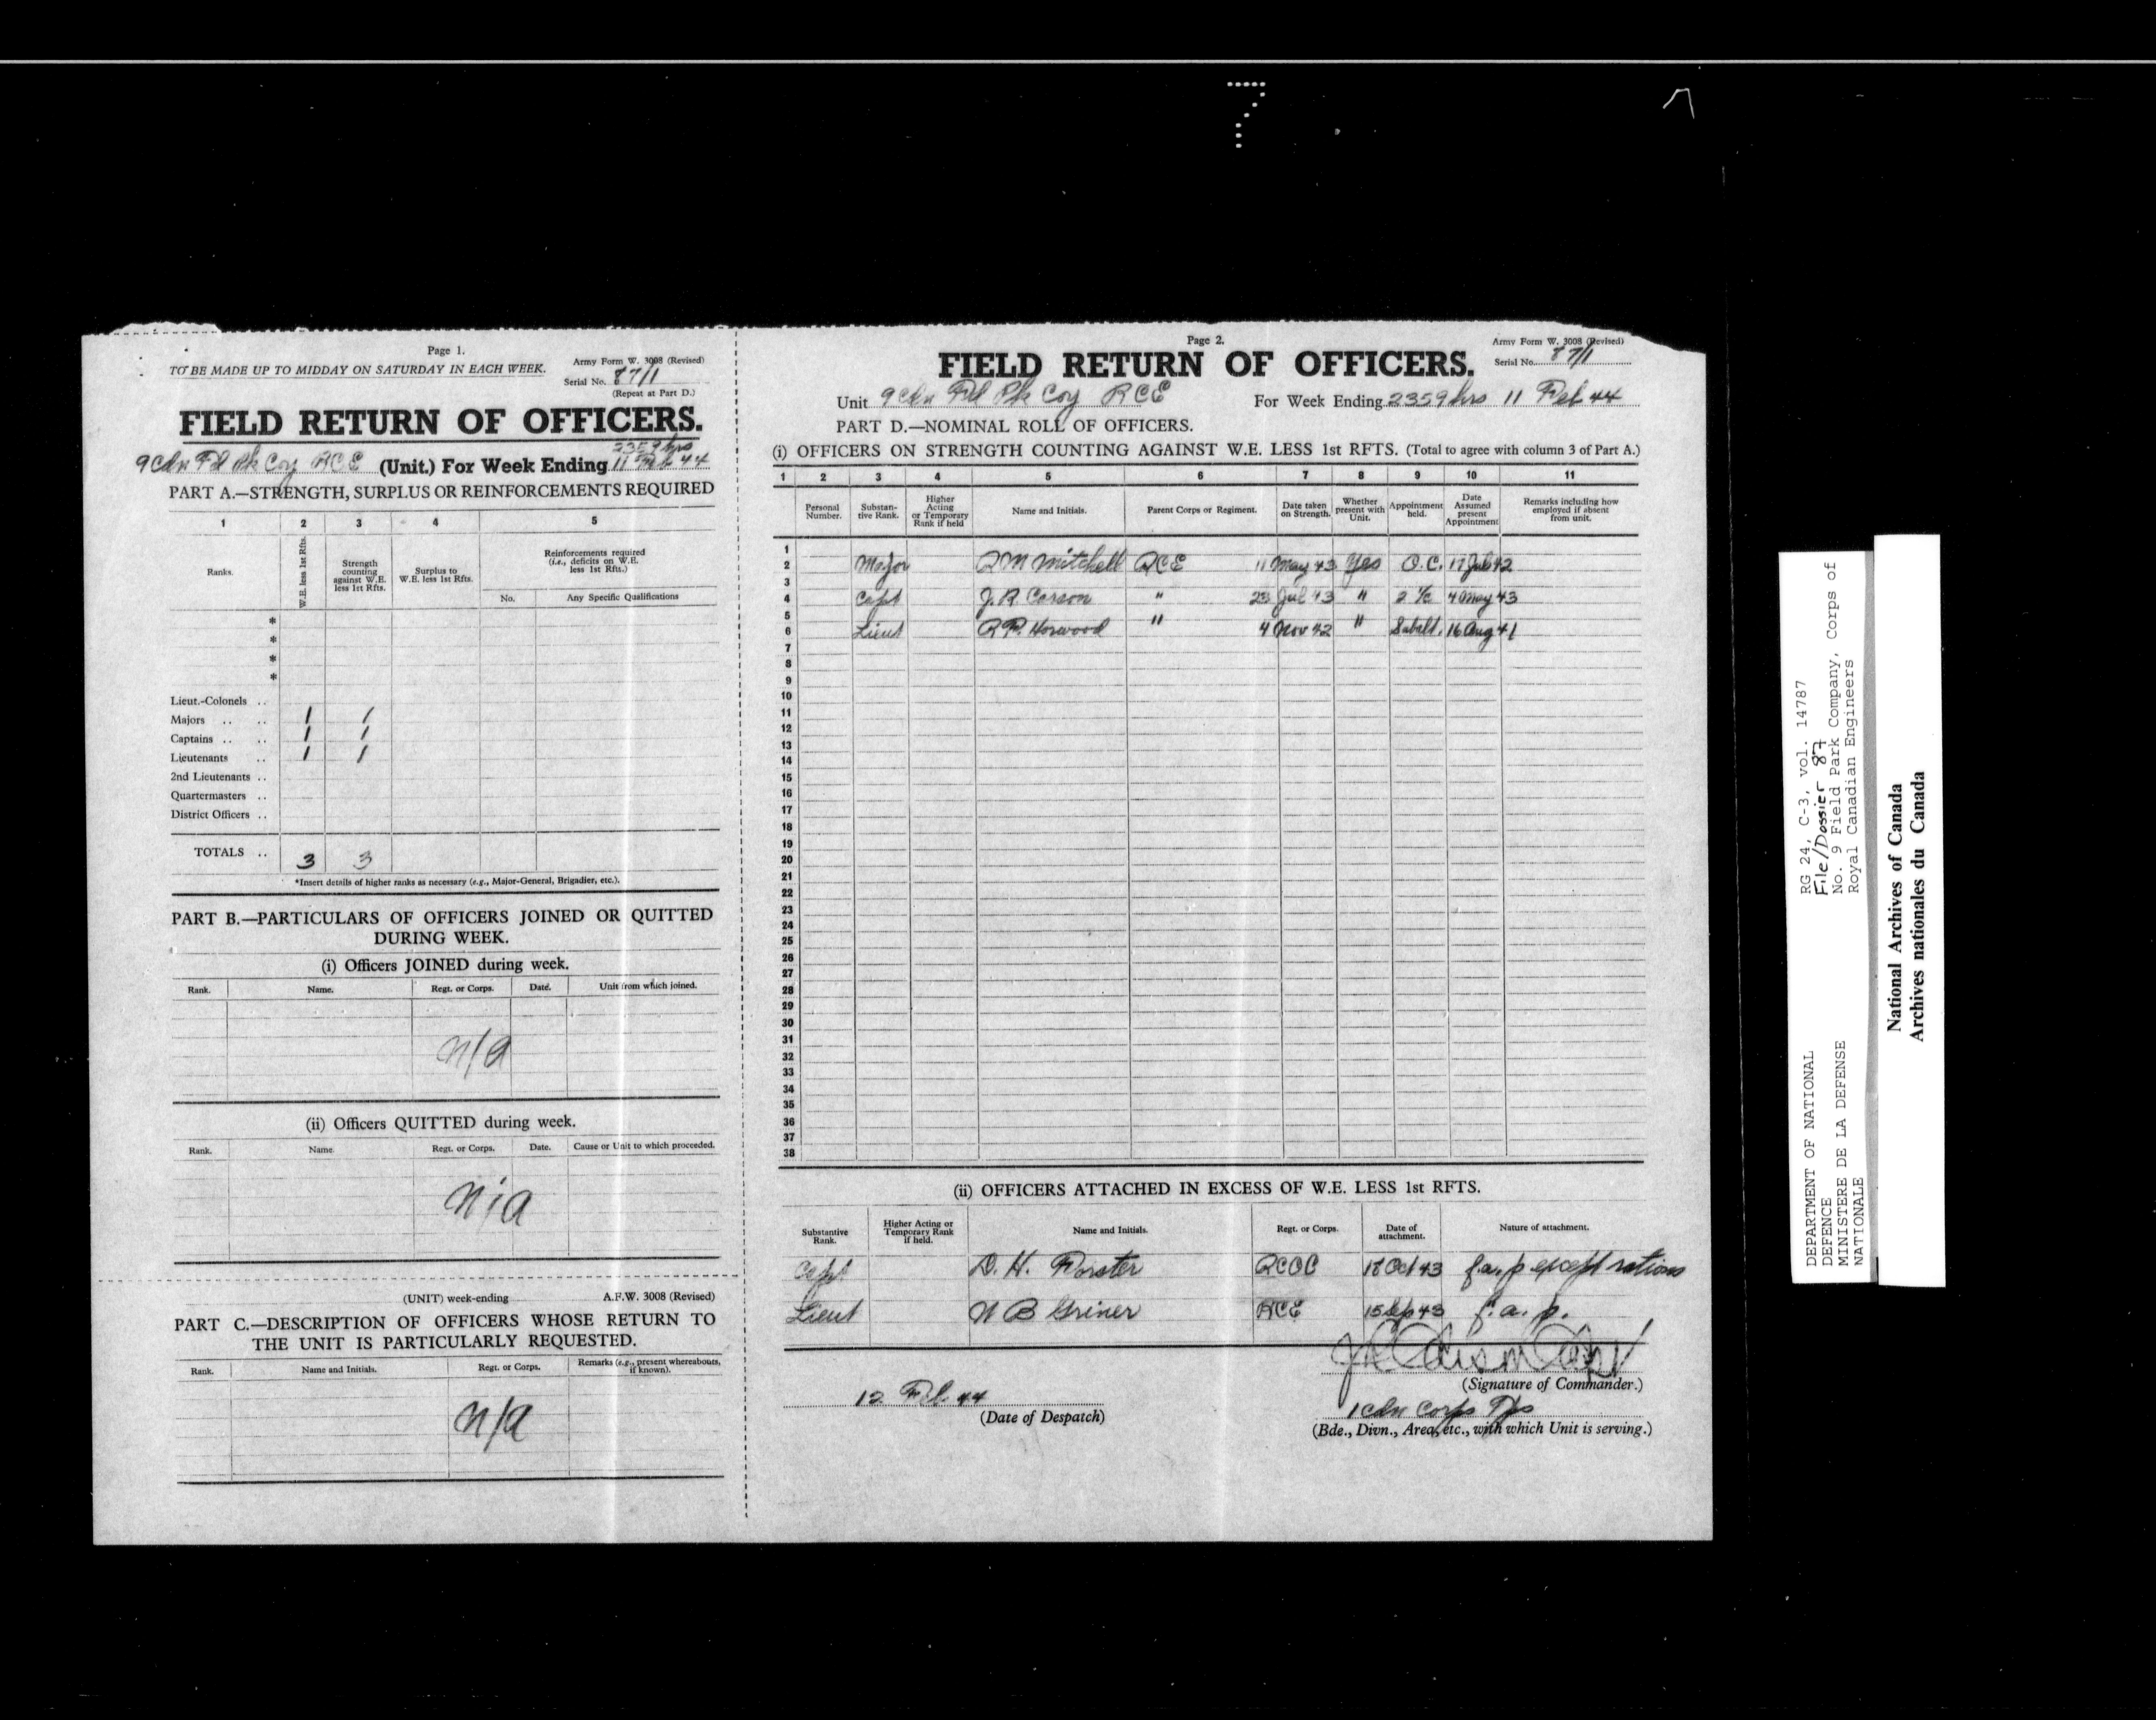 7
Page 1.
TO BE MADE UP TO MIDDAY ON SATURDAY IN EACH WEEK.
Army Form W. 3008 (Revised)
Serial No. 87/1
(Repeat at Part D.)
FIELD RETURN OF OFFICERS.
2359 hrs
9 Cdn Fd Pk Coy RCE (Unit.) For Week Ending 11 Feb 44
PART A.—STRENGTH, SURPLUS OR REINFORCEMENTS REQUIRED
1 2 3 4 5
Ranks.
W.E. less 1st Rfts.
Strength counting against W.E. less 1st Rfts.
Surplus to W.E. less 1st Rfts.
Reinforcements required (i.e., deficits on W.E. less 1st Rfts.)
No. Any Specific Qualifications
*
*
*
*
Lieut.-Colonels ..
Majors .. .. 1 1
Captains .. .. 1 1
Lieutenants .. 1 1
2nd Lieutenants ..
Quartermasters ..
District Officers ..
TOTALS .. 3 3
*Insert details of higher ranks as necessary (e.g., Major-General, Brigadier, etc.).
PART B.—PARTICULARS OF OFFICERS JOINED OR QUITTED
DURING WEEK.
(i) Officers JOINED during week.
Rank. Name. Regt. or Corps. Date. Unit from which joined.
n/a
(ii) Officers QUITTED during week.
Rank. Name. Regt. or Corps. Date. Cause or Unit to which proceeded.
n/a
(UNIT) week-ending A.F.W. 3008 (Revised)
PART C.—DESCRIPTION OF OFFICERS WHOSE RETURN TO
THE UNIT IS PARTICULARLY REQUESTED.
Rank. Name and Initials. Regt. or Corps. Remarks (e.g., present whereabouts, if known).
n/a
Page 2.
Army Form W. 3008 (Revised)
FIELD RETURN OF OFFICERS.
Serial No. 87/1
Unit 9 Cdn Fd Pk Coy RCE For Week Ending 2359 hrs 11 Feb 44
PART D.—NOMINAL ROLL OF OFFICERS.
(i) OFFICERS ON STRENGTH COUNTING AGAINST W.E. LESS 1st RFTS. (Total to agree with column 3 of Part A.)
1 2 3 4 5 6 7 8 9 10 11
Personal Number.
Substan-tive Rank.
Higher Acting or Temporary Rank if held
Name and Initials.
Parent Corps or Regiment.
Date taken on Strength.
Whether present with Unit.
Appointment held.
Date Assumed present Appointment
Remarks including how employed if absent from unit.
1
2 Major Mitchell RCE 11 May 43 Yes O.C. 17 42
3
4 Capt J.R. Carson " 23 Jul 43 " 2 I/C 4 May 43
5
6 Lieut Horwood " 4 Nov 42 " Subalt. 16 Aug 41
7
8
9
10
11
12
13
14
15
16
17
18
19
20
21
22
23
24
25
26
27
28
29
30
31
32
33
34
35
36
37
38
(ii) OFFICERS ATTACHED IN EXCESS OF W.E. LESS 1st RFTS.
Substantive Rank.
Higher Acting or Temporary Rank if held.
Name and Initials.
Regt. or Corps.
Date of attachment.
Nature of attachment.
Capt D. H. Forster RCOC 18 Oct 43 f.a.p except rations
Lieut Griner RCE 15 Sep 43 f.a.p.
(Signature of Commander.)
12 Feb 44
(Date of Despatch)
1 Cdn Corps Tps
(Bde., Divn., Area, etc., with which Unit is serving.)
DEPARTMENT OF NATIONAL
DEFENCE
MINISTERE DE LA DEFENSE
NATIONALE
RG 24, C-3, vol. 14787
File/Dossier 87
No. 9 Field Park Company, Corps of
Royal Canadian Engineers
National Archives of Canada
Archives nationales du Canada